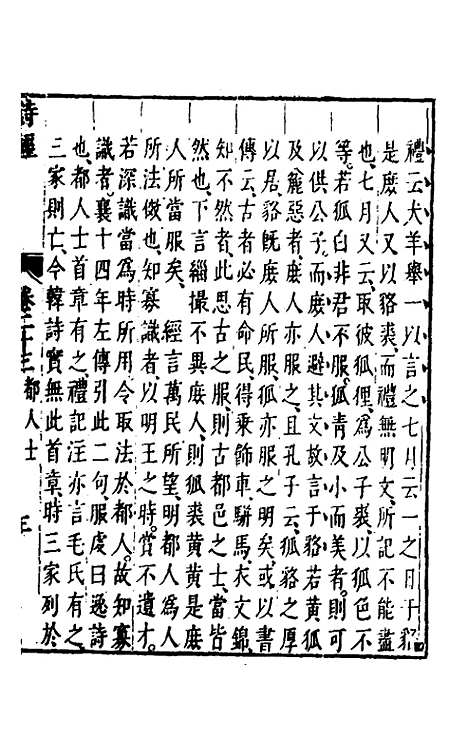 禮云犬羊舉一以言之七月云一之日于貉
是庶人又以貉裘、而禮無明文、所記不能盡
也、七月又云、取彼狐狸、爲公子裘、以狐色不
等、若狐白非君不服、狐青及小而美者、則可
以供公子而庶人避其文故言于貉若黃狐
及麄惡者、庶人亦服之、且孔子云、狐貉之厚
以居、貉既庶人所服、狐亦服之明矣、或以書
傳云、古者必有命民、得乘飾車、駢馬、衣文錦、
知不然者、此思古之服、則古都邑之士、當皆
然也、下言緇撮不異庶人、則狐裘黃黃是庶
人所當服矣、 經言萬民所望、明都人爲人
所法傚也、知寡識者、以明王之時、賞不遺才、
若深識當爲時所用、今取法於都人、故知寡
識者、襄十四年左傳引此二句、服虔曰逸詩
也、都人士首章有之、禮記注亦言毛氏有之、
三家則亡、今韓詩實無此首章、時三家列於
詩經 卷二十三 都人士 三